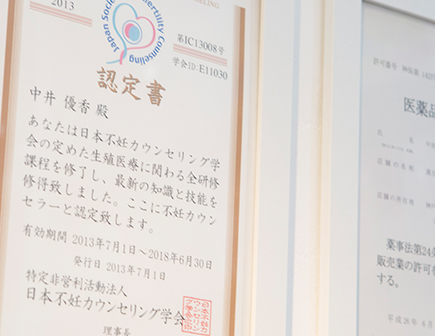 2013
Japan Soci
ertility Counseling
NSELING
第IC13008号
学会ID:E11030
認定書
中井 優香 殿
あなたは日本不妊カウンセリング学
会の定めた生殖医療に関わる全研修
課程を修了し、最新の知識と技能を
修得致しました。ここに不妊カウン
セラーと認定致します。
有効期間 2013年7月1日〜2018年6月30日
発行日 2013年7月1日
特定非営利活動法人
日本不妊カウンセリング学会
理事長
許可番号
医薬品
薬事法第24条
販売業の許可
する。
平成26年